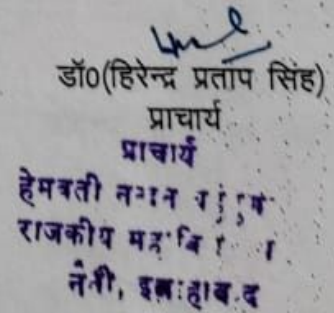 डॉ0(हिरेन्द्र प्रताप सिंह)
प्राचार्य
प्राचार्य
हेमवती नन्दन
राजकीय
नैनी, इलाहाबाद